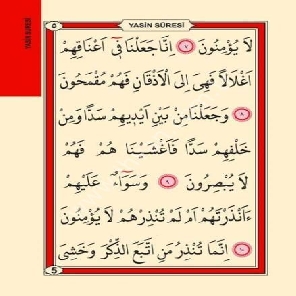 ٥ YASİN SÛRESİ
YASİN SÛRESİ
لَا يُؤْمِنُونَ ﴿٧﴾ اِنَّا جَعَلْنَا فٓى اَعْنَاقِهِمْ
اَغْلَالًا فَهِىَ اِلَى الْاَذْقَانِ فَهُمْ مُقْمَحُونَ
﴿٨﴾ وَجَعَلْنَا مِنْ بَيْنِ اَيْدِيهِمْ سَدًّا وَمِنْ
خَلْفِهِمْ سَدًّا فَاَغْشَيْنَا هُمْ فَهُمْ
لَا يُبْصِرُونَ ﴿٩﴾ وَسَوَٓاءٌ عَلَيْهِمْ
ءَاَنْذَرْتَهُمْ اَمْ لَمْ تُنْذِرْهُمْ لَا يُؤْمِنُونَ
﴿١٠﴾ اِنَّمَا تُنْذِرُ مَنِ اتَّبَعَ الذِّكْرَ وَخَشِىَ
5